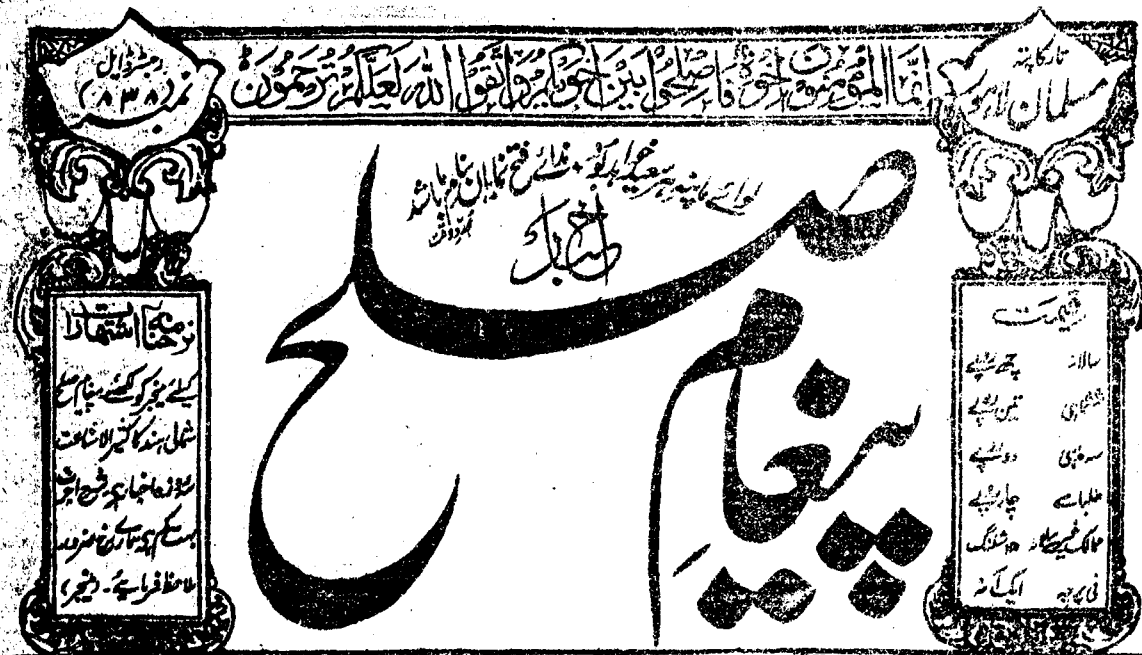 تار کا پتہ
مسلمان لاہور
اِنَّمَا الْمُؤْمِنُونَ اِخْوَةٌ فَاَصْلِحُوْا بَيْنَ اَخَوَيْكُمْ وَاتَّقُوا اللّٰهَ لَعَلَّكُمْ تُرْحَمُوْنَ
رجسٹرڈ ایل
نمبر (۸۳۸)
لوائے ما پنہ ہر سعید خواہد بود ٭ ندائے فتح نمایاں بنام ما باشد
اخبار
پیغامِ صلح
قیمت
سالانہ چھ روپے
ششماہی تین روپے
سہ ماہی دو روپے
طلبا سے چار روپے
ممالک غیر سے سالانہ شلنگ
فی پرچہ ایک آنہ
نرخنامہ اشتہارات
کیلئے منیجر کو لکھئے۔ پیغام صلح
شمالی ہند کا کثیر الاشاعت
روزہ اخبار ہے۔ شرح اجرت
بہت کم ہے ہمارے نرخ ضرور
ملاحظہ فرمایئے۔ (منیجر)